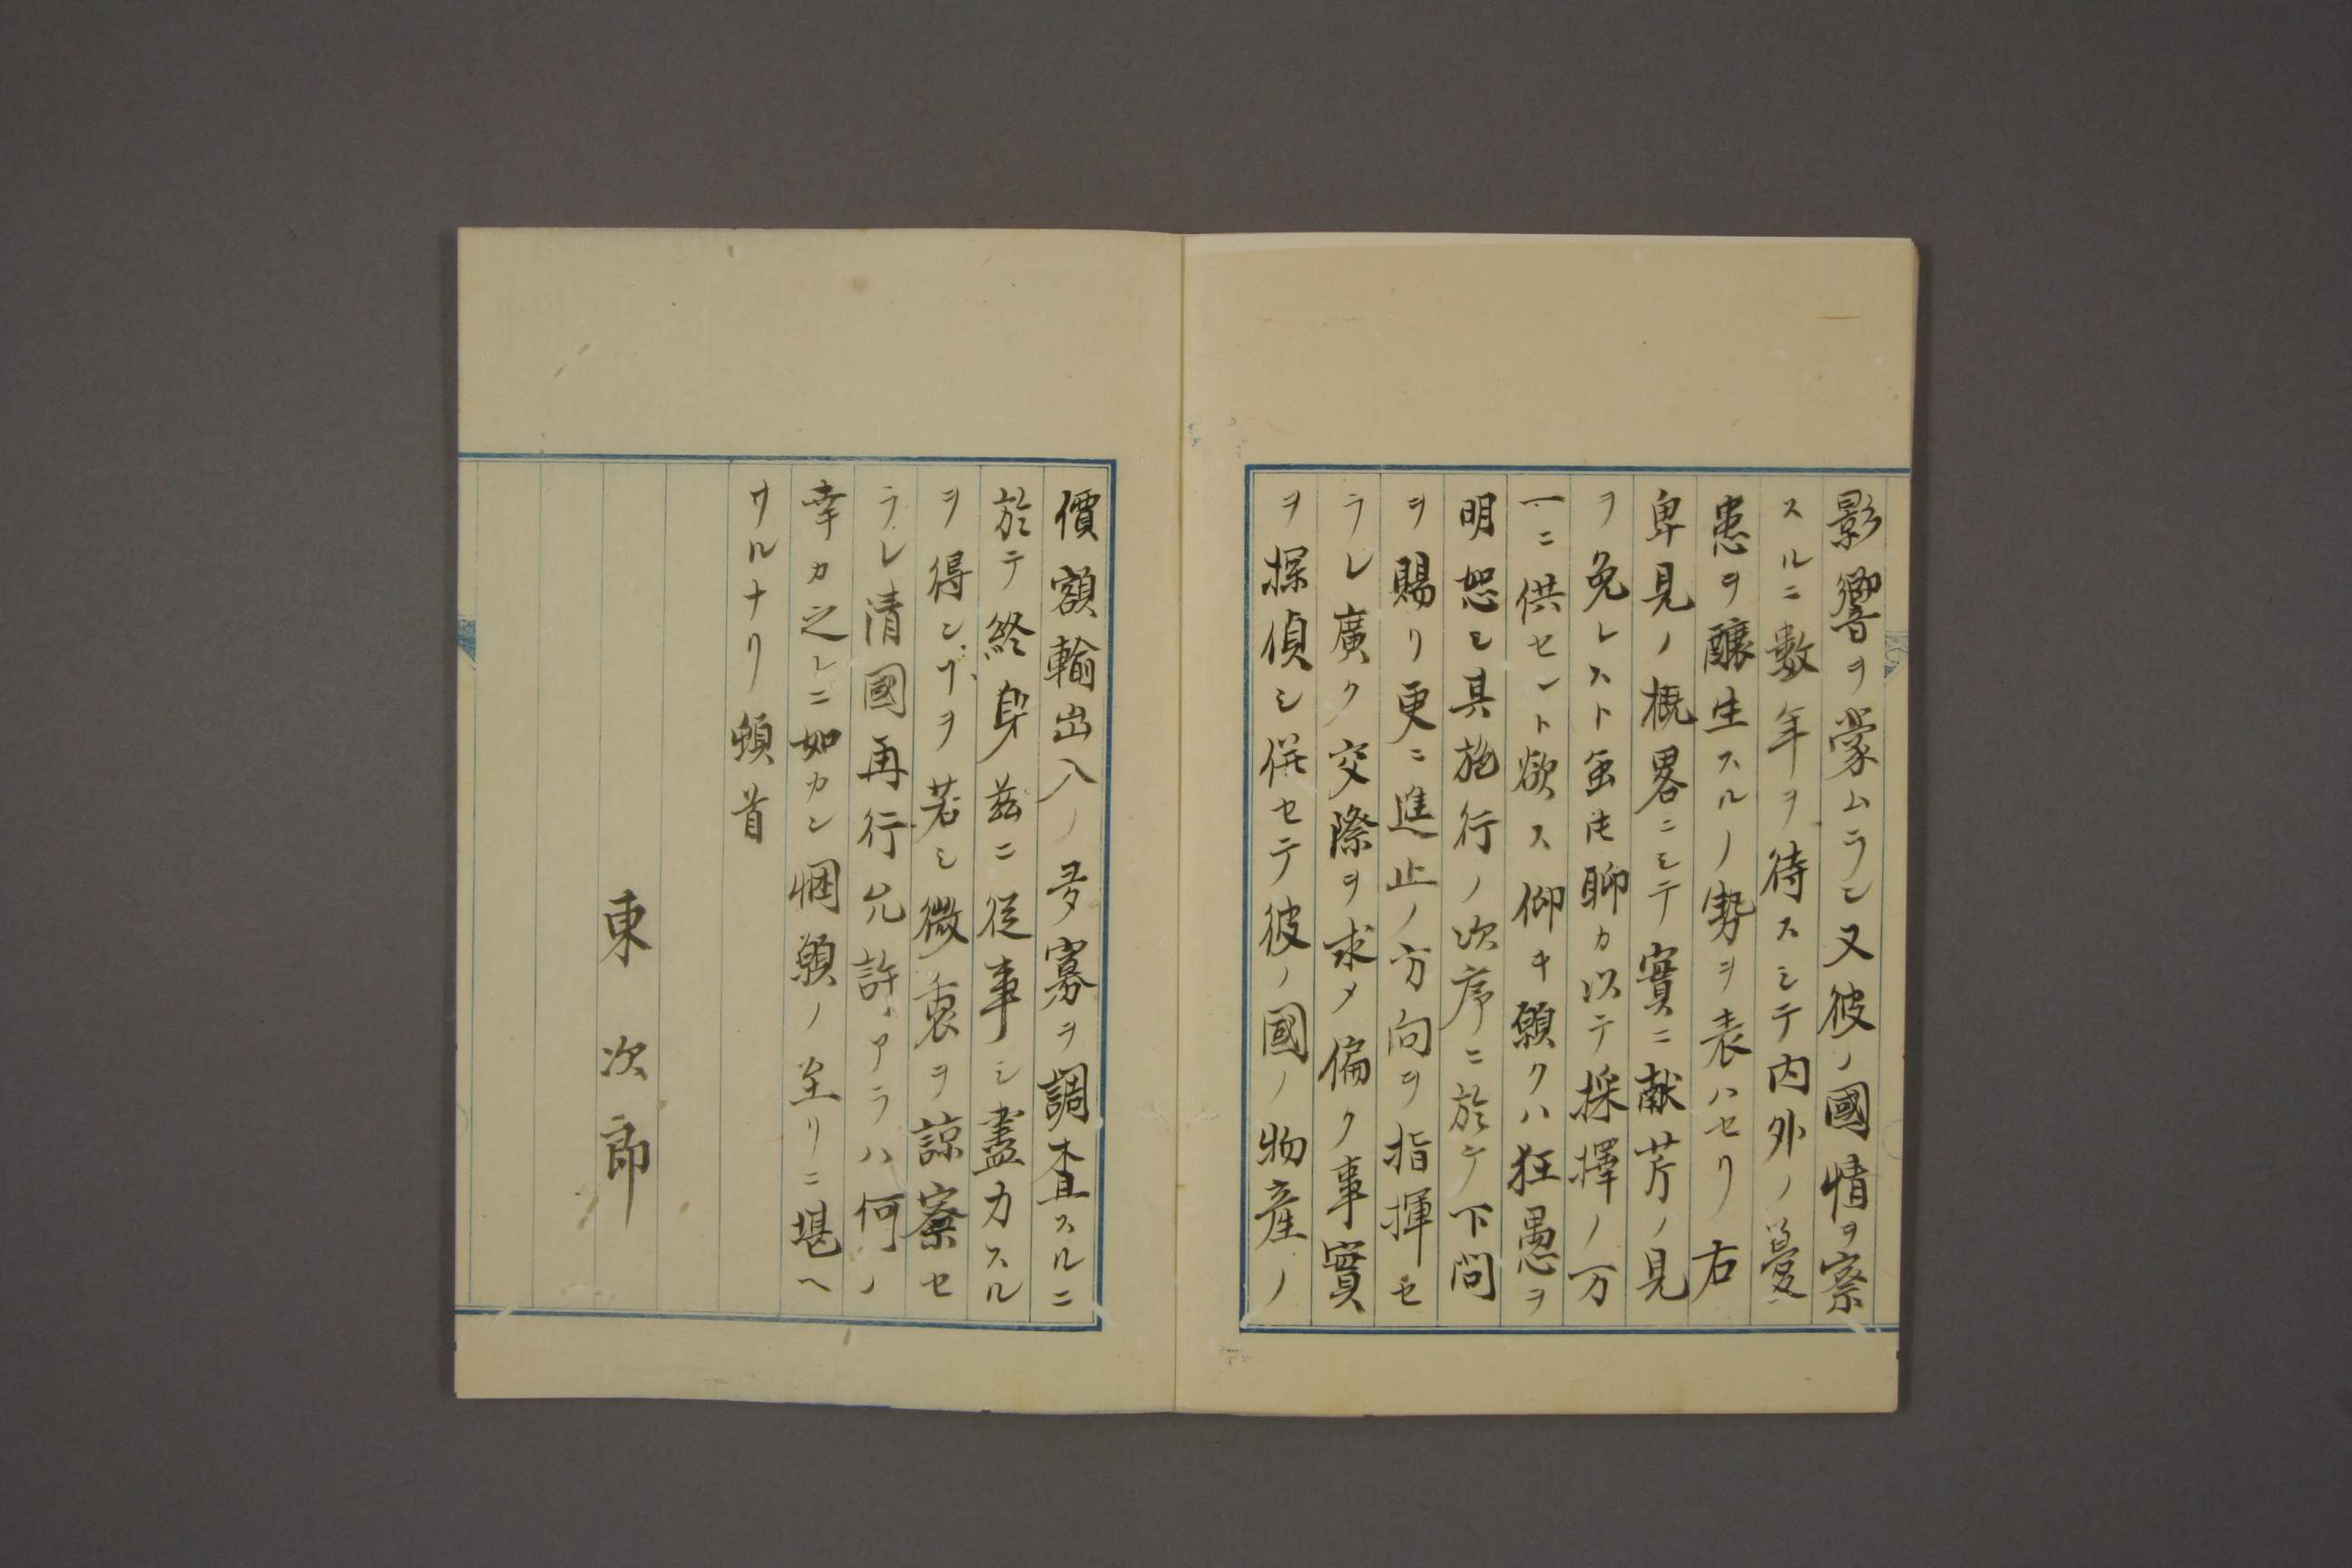 影響ヲ蒙ムラン又彼ノ國情ヲ察
スルニ數年ヲ待スシテ内外ノ憂
患ヲ釀生スルノ勢ヲ表ハセリ右
卑見ノ概畧ニシテ實ニ献芹ノ見
ヲ免レスト虽𪜈聊カ以テ採擇ノ万
一ニ供セント欲ス仰キ願クハ狂愚ヲ
明恕シ其施行ノ次序ニ於テ下問
ヲ賜リ更ニ進止ノ方向ヲ指揮セ
ラレ廣ク交際ヲ求メ偏ク事實
ヲ探偵シ併セテ彼ノ國ノ物産ノ
價額輸出入ノ多寡ヲ調査スルニ
於テ終身茲ニ從事シ盡力スル
ヲ得ンヿヲ若シ微衷ヲ諒察セ
ラレ清國再行允許アラハ何ノ
幸カ之レニ如カン悃願ノ至リニ堪ヘ
サルナリ頓首
東次郎